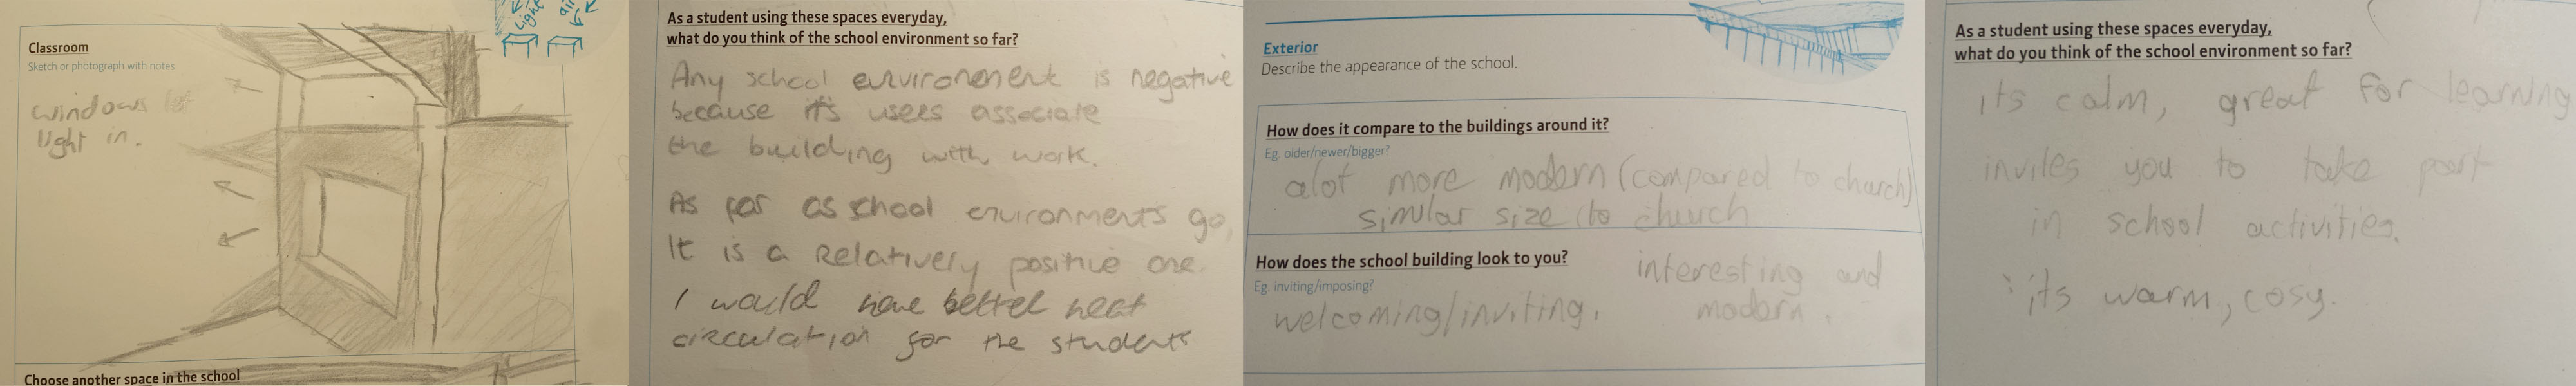 light
air
Classroom
Sketch or photograph with notes
windows let
light in.
Choose another space in the school
As a student using these spaces everyday,
what do you think of the school environment so far?
Any school environment is negative
because it's users associate
the building with work.
As far as school environments go,
It is a Relatively positive one.
I would have better heat
circulation for the students
Exterior
Describe the appearance of the school.
How does it compare to the buildings around it?
Eg. older/newer/bigger?
alot more modern (compared to church)
similar size (to church
How does the school building look to you?
Eg. inviting/imposing?
interesting and
welcoming/inviting. modern.
As a student using these spaces everyday,
what do you think of the school environment so far?
its calm, great for learning
invites you to take part
in school activities.
its warm, cosy.